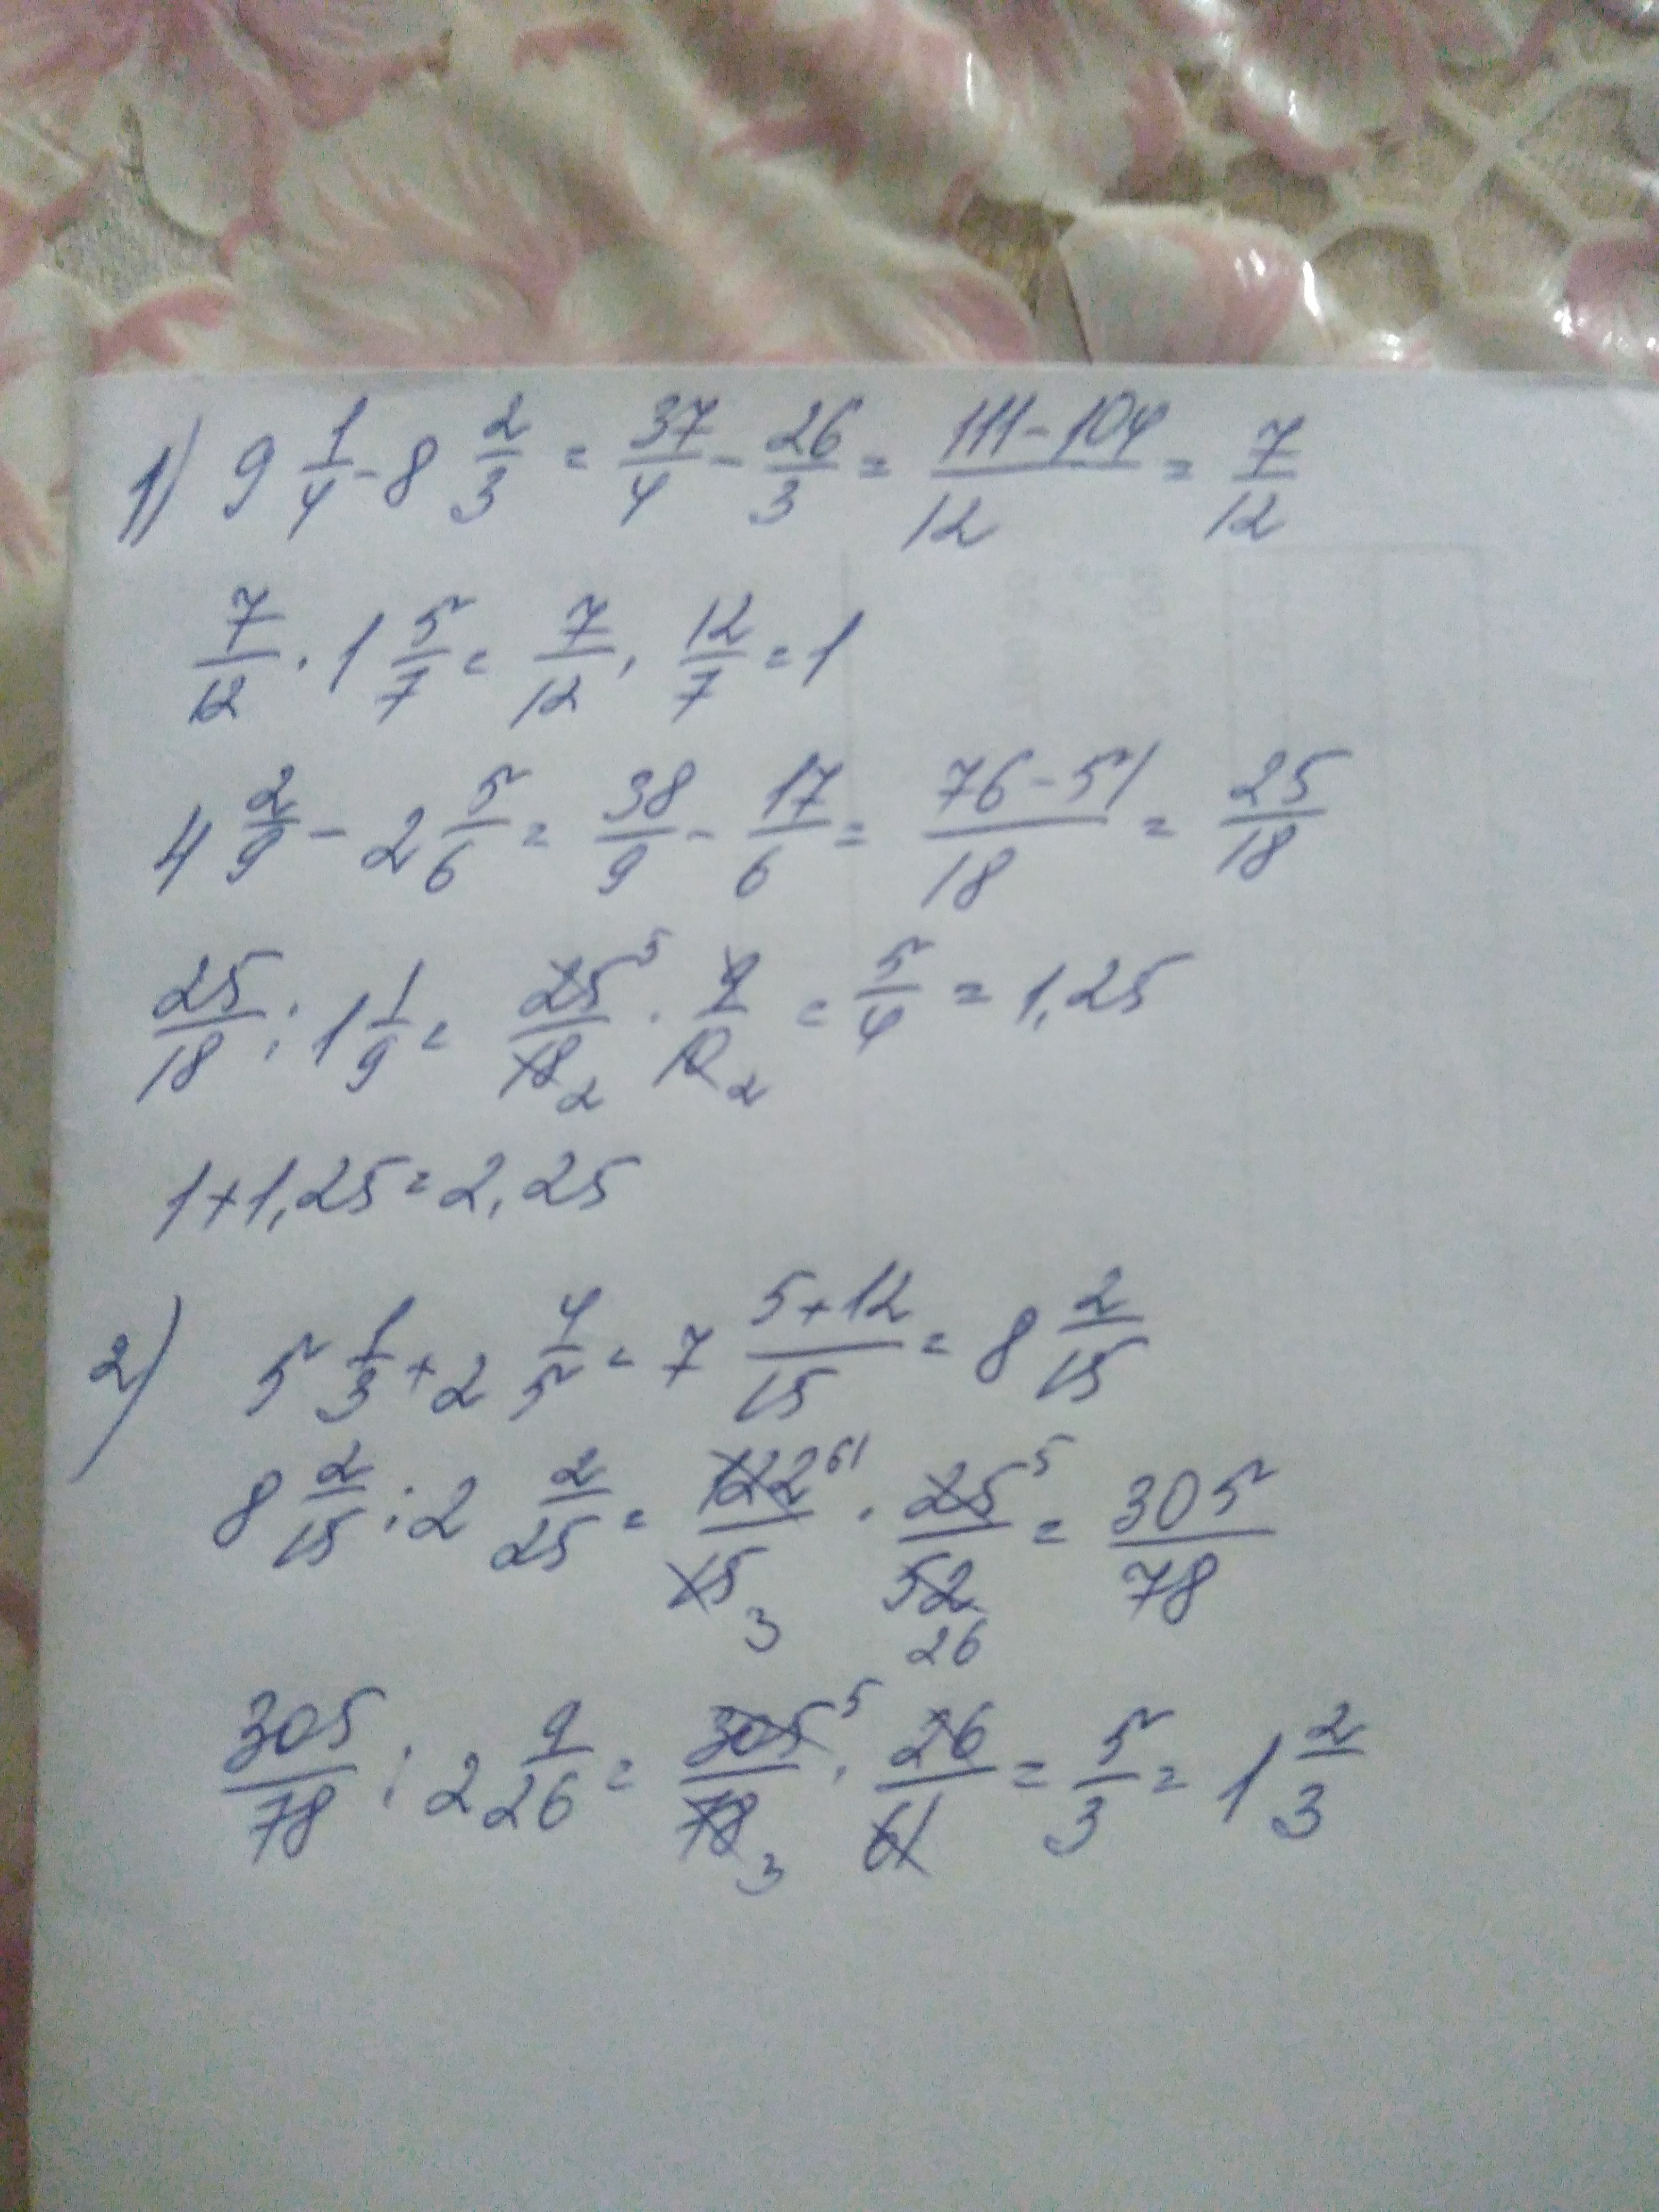 1) 9 1/4 - 8 2/3 = 37/4 - 26/3 = (111-104)/12 = 7/12
7/12 · 1 5/7 = 7/12 · 12/7 = 1
4 2/9 - 2 5/6 = 38/9 - 17/6 = (76-51)/18 = 25/18
25/18 : 1 1/9 = 25 5/18 2 · 9/10 2 = 5/4 = 1,25
1+1,25=2,25
2) 5 1/3 + 2 4/5 = 7 (5+12)/15 = 8 2/15
8 2/15 : 2 2/25 = 122 61/15 3 · 25 5/52 26 = 305/78
305/78 : 2 9/26 = 305 5/78 3 · 26/61 = 5/3 = 1 2/3